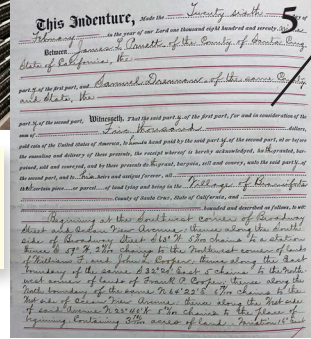 5
This Indenture, Made the Twenty sixth day of
February in the year of our Lord one thousand eight hundred and seventy
Between James L. Prewett of the County of Santa Cruz
State of California, the
part y of the first part, and Samuel Drennan of the same County
and State, the
part y of the second part, Witnesseth, That the said part y of the first part, for and in consideration of the
sum of Thousand dollars,
gold coin of the United States of America, to him in hand paid by the said part y of the second part, at or before
the ensealing and delivery of these presents, the receipt whereof is hereby acknowledged, ha granted, bar-
gained, sold and conveyed, and by these presents do grant, bargain, sell and convey, unto the said part y of
the second part, and to his heirs and assigns forever, all
th certain piece or parcel of land lying and being in the Village of Branciforte
County of Santa Cruz, State of California, and
bounded and described as follows, to wit:
Beginning at the Southwest corner of Broadway
Street and Ocean View Avenue; thence along the South
side of Broadway Street chains to a station
thence chains to the Northwest corner of land
of William F. and John L. Cooper, thence along the East
boundary of the same S 32° 20' East 5 chains to the North-
west corner of lands of Frank P. Cooper, thence along the
North boundary of the same N 64° 22' E chains to the
West side of Ocean View Avenue thence along the West side
of said Avenue N chains to the place of
beginning Containing acres of land. Variation 16° East